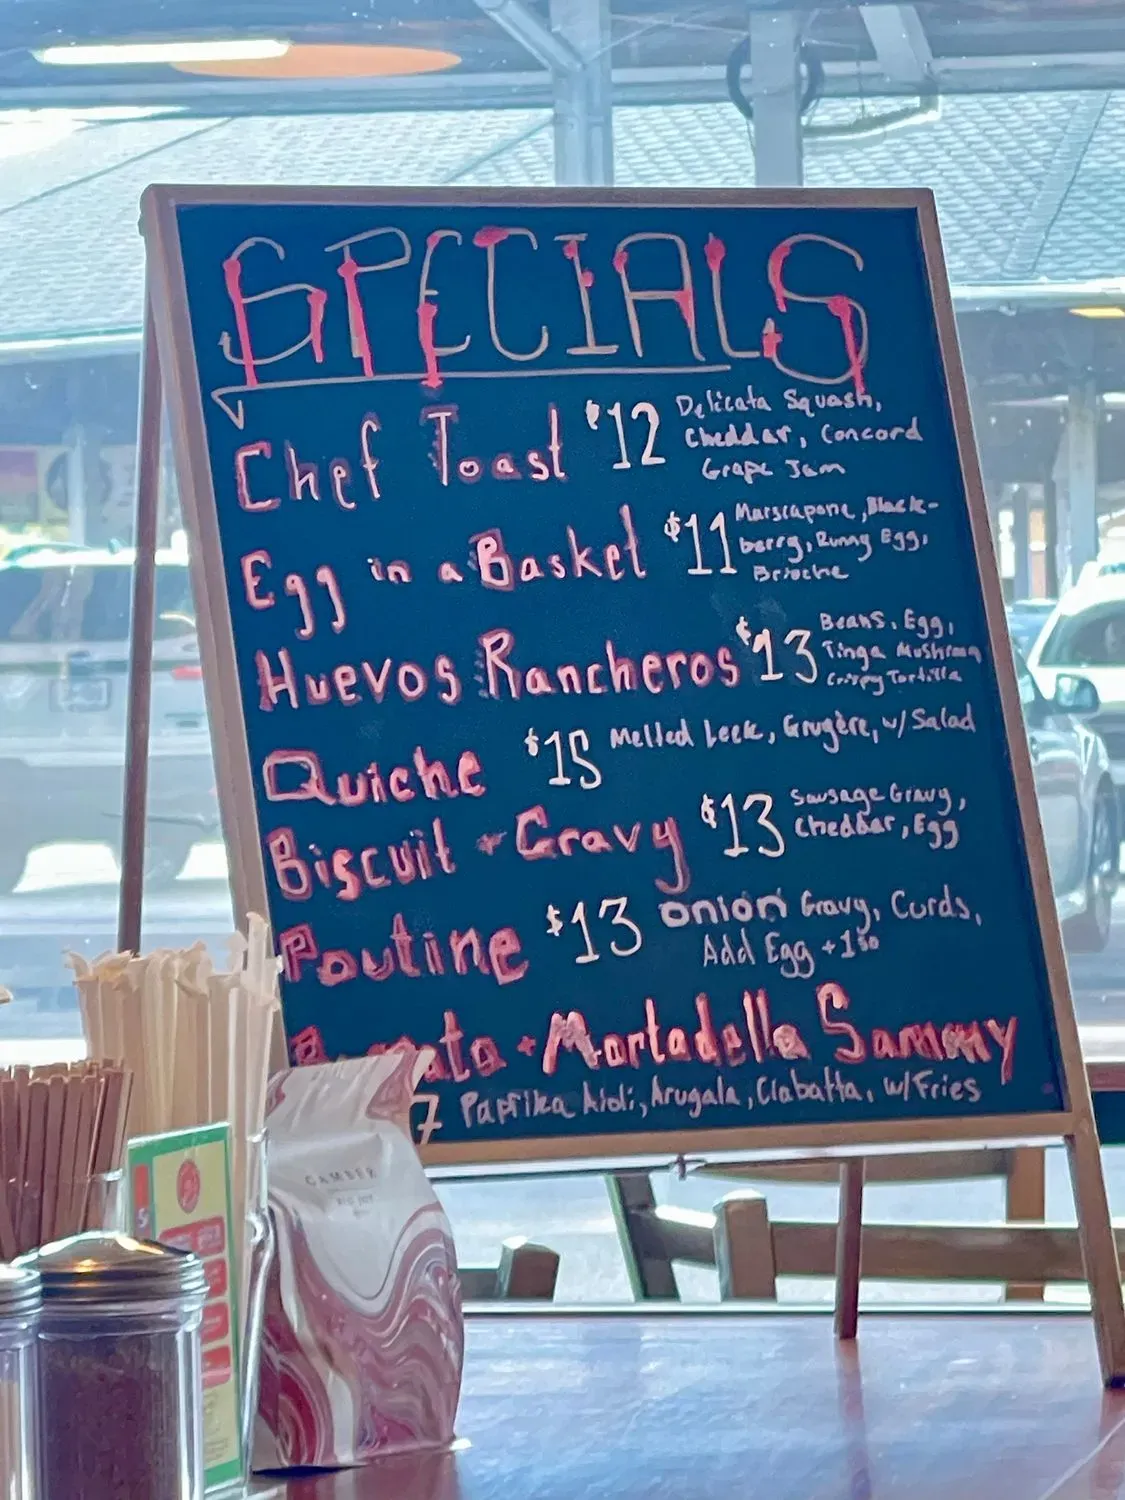 SPECIALS
Chef Toast $12 Delicata Squash,
Cheddar, Concord
Grape Jam
Egg in a Basket $11 Marscapone, Black-
berry, Runny Egg,
Brioche
Huevos Rancheros $13 Beans, Egg,
Tinga Mushroom
Crispy Tortilla
Quiche $15 Melled Leek, Grugère, w/ Salad
Biscuit + Gravy $13 Sausage Gravy,
Cheddar, Egg
Poutine $13 Onion Gravy, Curds,
Add Egg +1 50
+ Mortadella Sammy
7 Paprika Aioli, Arugala, Ciabatta, w/Fries
CAMBER